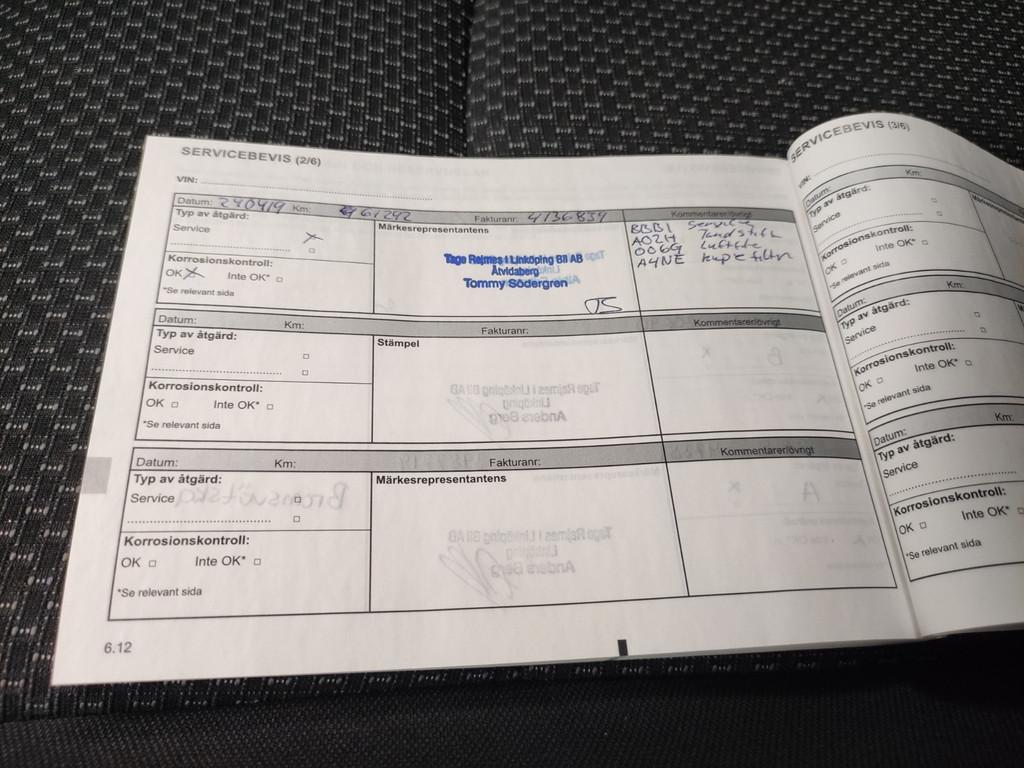 SERVICEBEVIS (2/6)
VIN:
Datum: 240419 Km: 61242 Fakturanr: 4136834 Kommentarer/övrigt
Typ av åtgärd:
Service
Korrosionskontroll:
OK Inte OK*
*Se relevant sida
Märkesrepresentantens
Tage Rejmes i Linköping Bil AB
Åtvidaberg
Tommy Södergren
BBB1 Service
A02H Tändstift
006G Luftfilter
A4NE kupefilter
Datum: Km: Fakturanr: Kommentarer/övrigt
Typ av åtgärd:
Service
Korrosionskontroll:
OK Inte OK*
*Se relevant sida
Stämpel
Datum: Km: Fakturanr: Kommentarer/övrigt
Typ av åtgärd:
Service
Korrosionskontroll:
OK Inte OK*
*Se relevant sida
Märkesrepresentantens
6.12
SERVICEBEVIS (3/6)
VIN:
Datum: Km:
Typ av åtgärd:
Service
Korrosionskontroll:
OK Inte OK*
*Se relevant sida
Datum: Km:
Typ av åtgärd:
Service
Korrosionskontroll:
OK Inte OK*
*Se relevant sida
Datum: Km:
Typ av åtgärd:
Service
Korrosionskontroll:
OK Inte OK*
*Se relevant sida